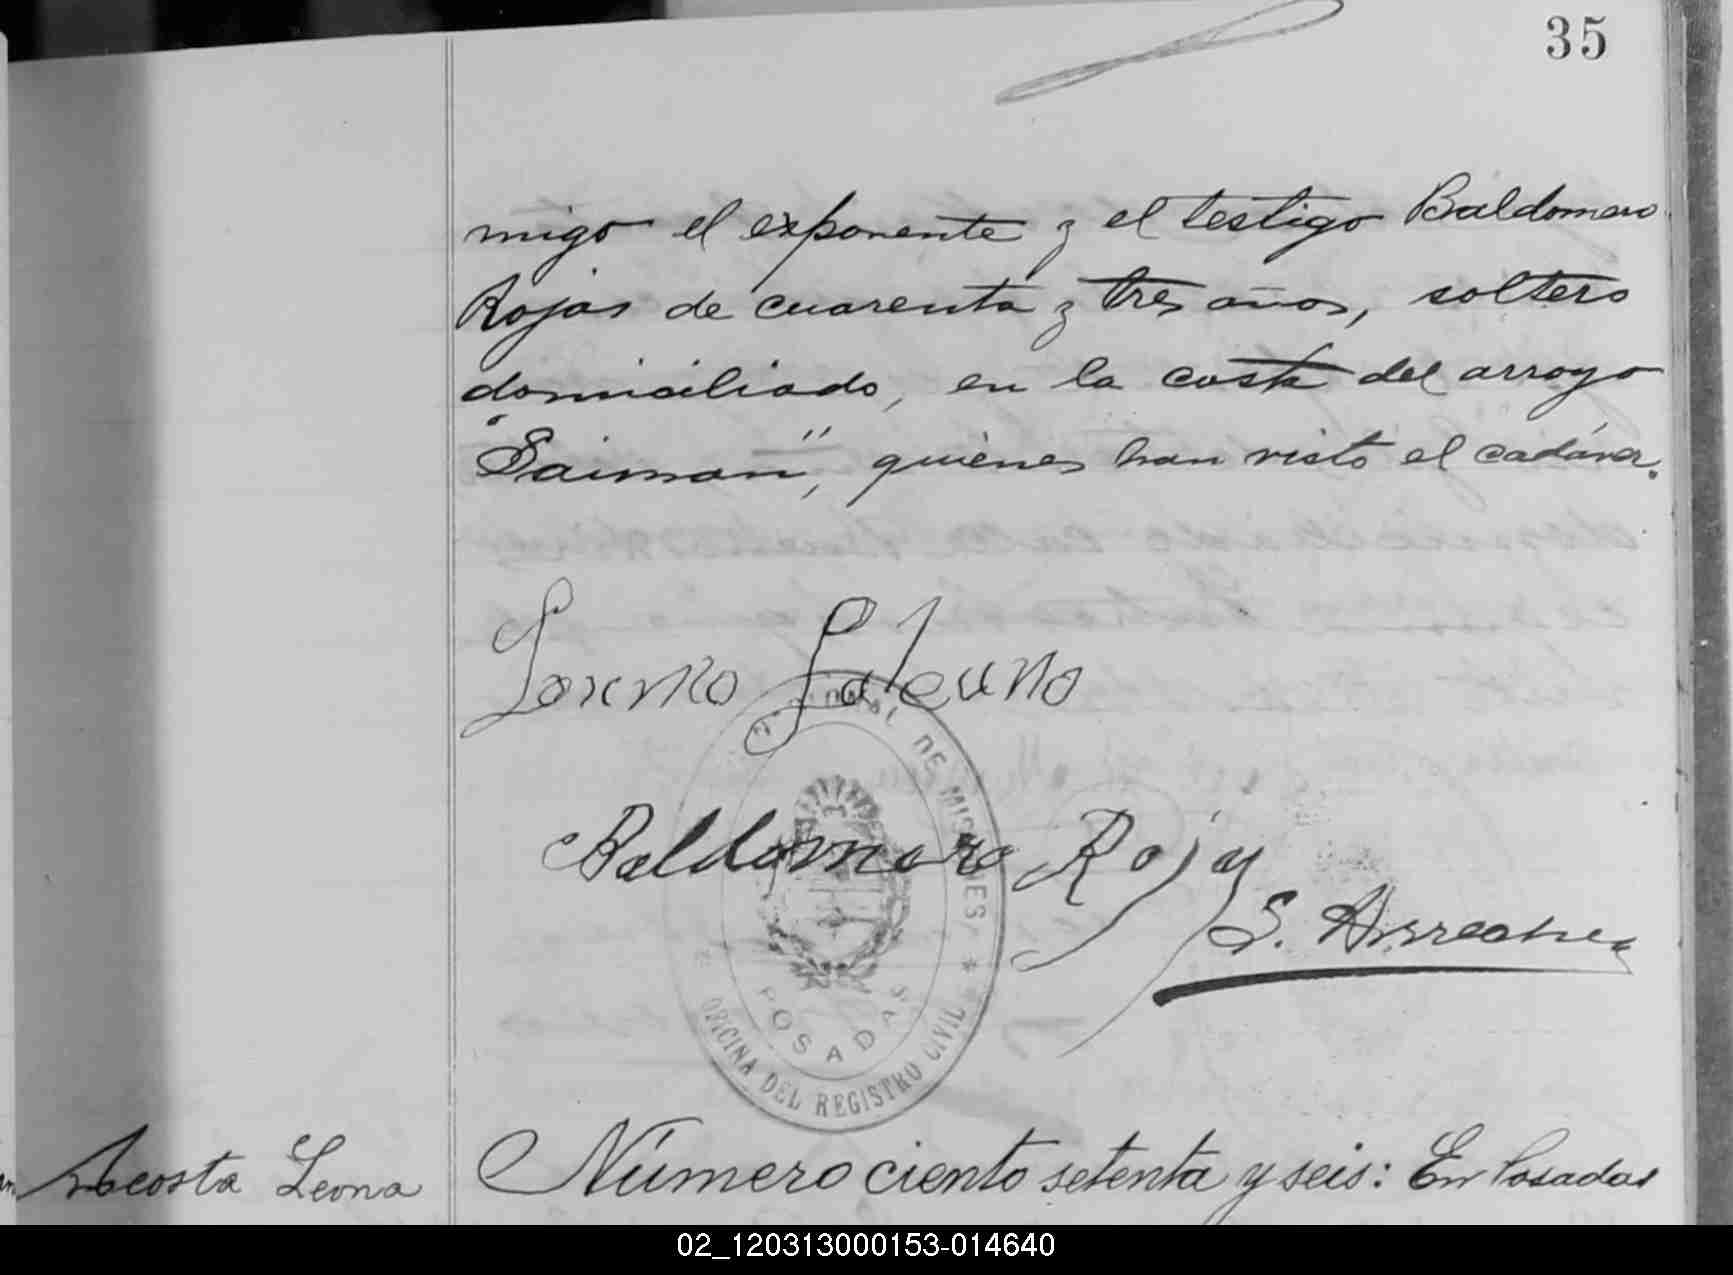 35
migo el exponente y el testigo Baldomero
Rojas de cuarenta y tres años, soltero
domiciliado, en la costa del arroyo
"Saiman", quienes han visto el cadáver.
Lorenzo Galeano
Baldomero Rojas
S. Arrechea
DE MISIONES
POSADAS
OFICINA DEL REGISTRO CIVIL
Acosta Leona
Número ciento setenta y seis: En Posadas
02_120313000153-014640